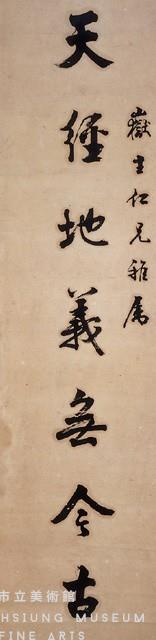 嶽生仁兄雅属
天經地義無今古
市立美術館
HSIUNG MUSEUM
FINE ARTS